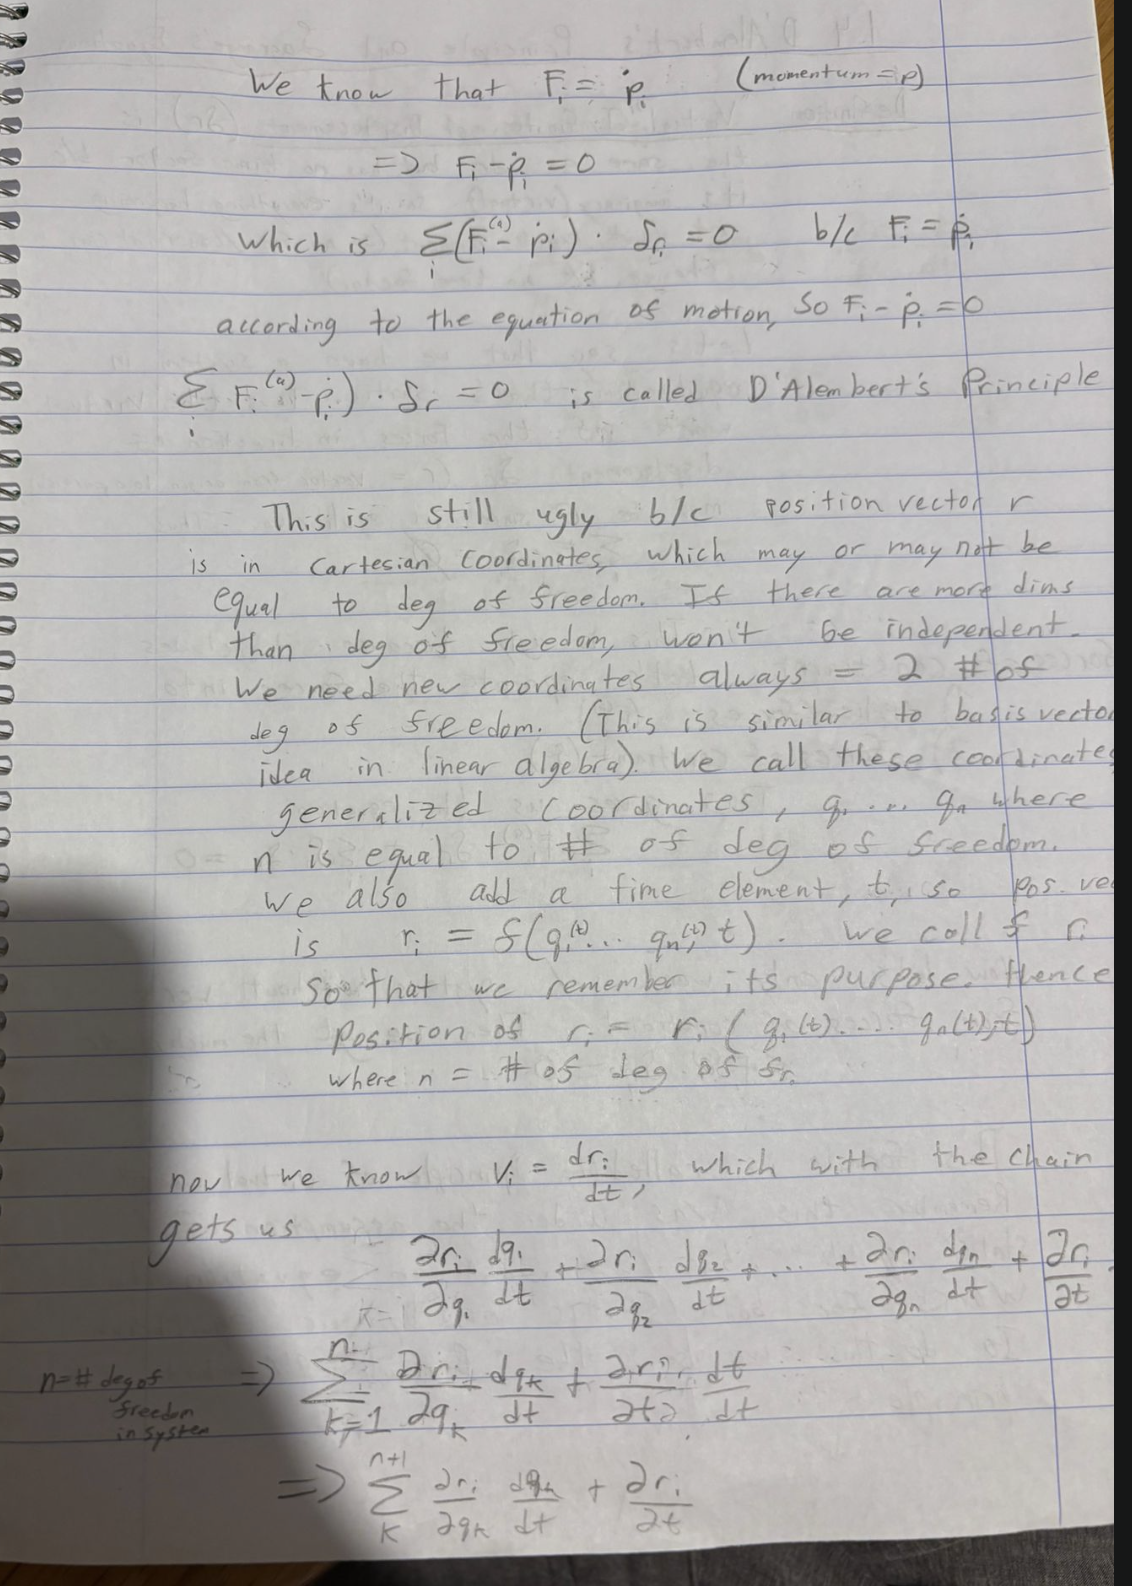 We know that F_i = ṗ_i (momentum = p)
=> F_i - ṗ_i = 0
Which is Σ_i (F_i^(a) - ṗ_i) · δr_i = 0 b/c F_i = ṗ_i
according to the equation of motion, so F_i - ṗ_i = 0
Σ_i F_i^(a) - ṗ_i) · δr = 0 is called D'Alembert's Principle
This is still ugly b/c position vector r
is in Cartesian coordinates, which may or may not be
equal to deg of freedom. If there are more dims
than deg of freedom, won't be independent.
We need new coordinates always = 2 # of
deg of freedom. (This is similar to basis vector
idea in linear algebra). We call these coordinates
generalized coordinates, q_1 ... q_n where
n is equal to # of deg of freedom.
we also add a time element, t, so pos. vec
is r_i = f(q_1(t)... q_n(t), t). We call f r_i
So that we remember its purpose. Hence
Position of r_i = r_i (q_1(t).... q_n(t), t)
where n = # of deg of fr.
now we know v_i = dr_i/dt, which with the chain
gets us
∂r_i/∂q_1 dq_1/dt + ∂r_i/∂q_2 dq_2/dt + ... + ∂r_i/∂q_n dq_n/dt + ∂r_i/∂t
n = # deg of => Σ_{k=1}^{n} ∂r_i/∂q_k dq_k/dt + ∂r_i/∂t dt/dt
freedom
in system
=> Σ_k^{n+1} ∂r_i/∂q_k dq_k/dt + ∂r_i/∂t